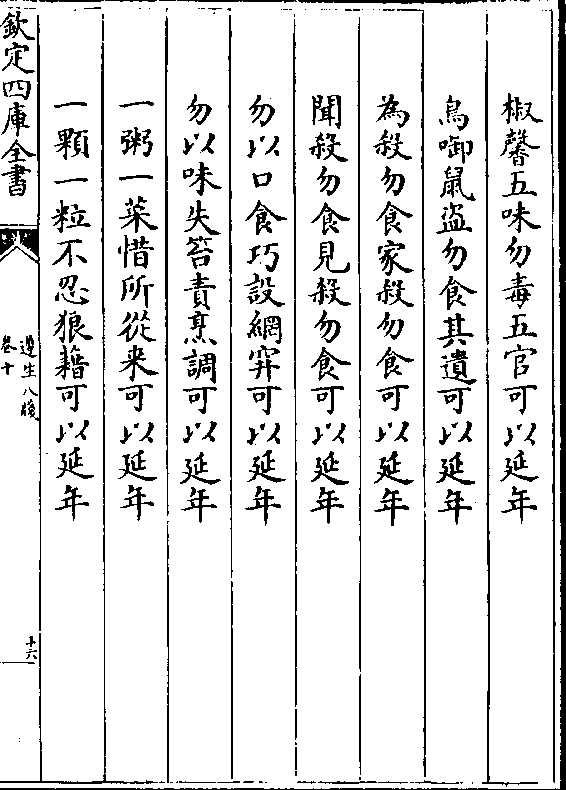 椒馨五味勿毒五官可以延年
鳥啣鼠盜勿食其遺可以延年
為殺勿食家殺勿食可以延年
聞殺勿食見殺勿食可以延年
勿以口食巧設網穽可以延年
勿以味失笞責烹調可以延年
一粥一菜惜所從来可以延年
一顆一粒不忍狼藉可以延年
欽定四庫全書
遵生八牋
卷十
十六